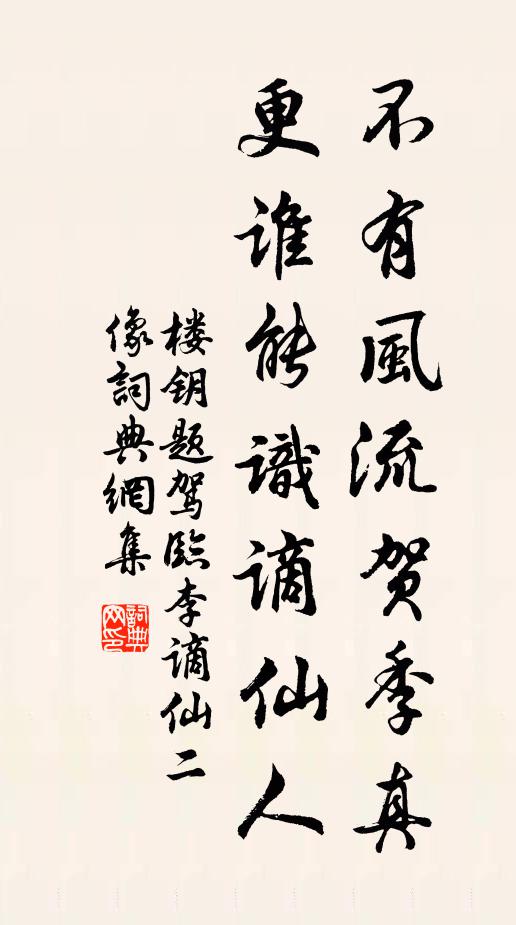 不有風流贺季真
更谁能識谪仙人
楼钥题驾臨李谪仙二
像詞典網集
詞典网印